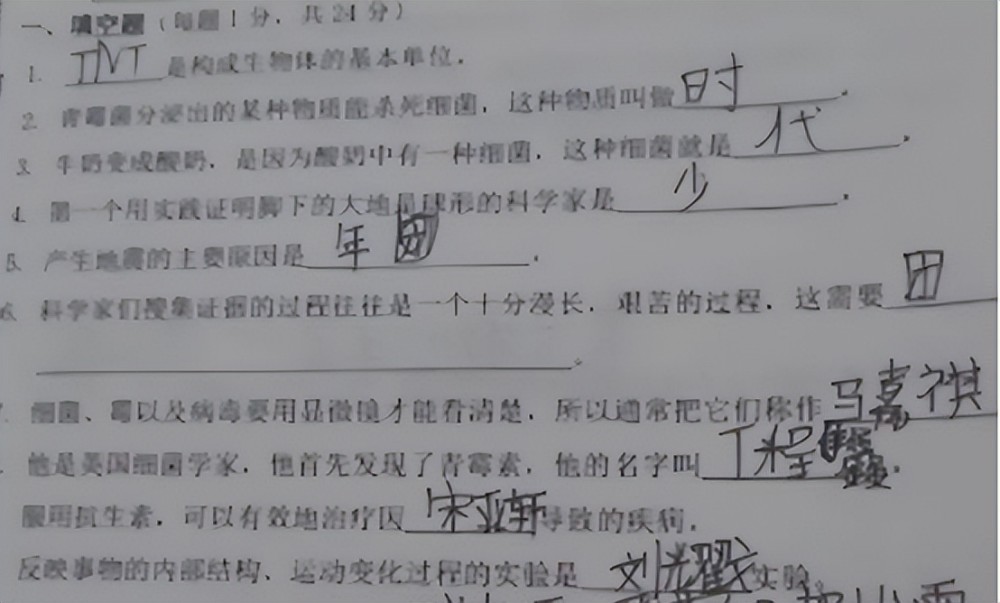 一、填空题（每题1分，共24分）
1. TNT 是构成生物体的基本单位。
2. 青霉菌分泌出的某种物质能杀死细菌，这种物质叫做 时 。
3. 牛奶变成酸奶，是因为酸奶中有一种细菌，这种细菌就是 代 。
4. 第一个用实践证明脚下的大地是球形的科学家是 少 。
5. 产生地震的主要原因是 年团 。
6. 科学家们搜集证据的过程往往是一个十分漫长、艰苦的过程。这需要 团
。
细菌、霉以及病毒要用显微镜才能看清楚，所以通常把它们称作 马嘉祺
他是英国细菌学家，他首先发现了青霉素，他的名字叫 丁程 。
服用抗生素，可以有效地治疗因 宋亚轩 导致的疾病。
反映事物的内部结构、运动变化过程的实验是 刘耀文 实验。